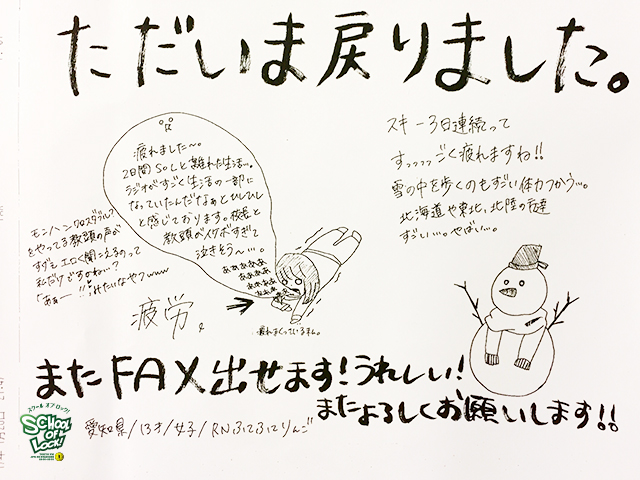 ただいま戻りました。
疲れました〜。
2日間SOLと離れた生活…。
ラジオがすごく生活の一部に
なっていたんだなぁとひしひし
と感じております。校長と
教頭がイケボすぎて
泣きそう〜…。
モンハンクロスダブル?
をやってる教頭の声が
すごもエロく聞こえるのって
私だけですよね…?
「あぁー!!」みたいなやつwww
あぁぁああ
あぁぁああ
疲労
疲れまくっているまん。
スキー3日連続って
すっっっっごく疲れますね!!
雪の中を歩くのもすごい体力つかう…。
北海道や東北、北陸の友達
すごい…。やばい…。
またFAX出せます!うれしい!
またよろしくお願いします!!
愛知県/13才/女子/RNふてふてりんご
スクール オブ ロック!
SCHOOL OF LOCK!